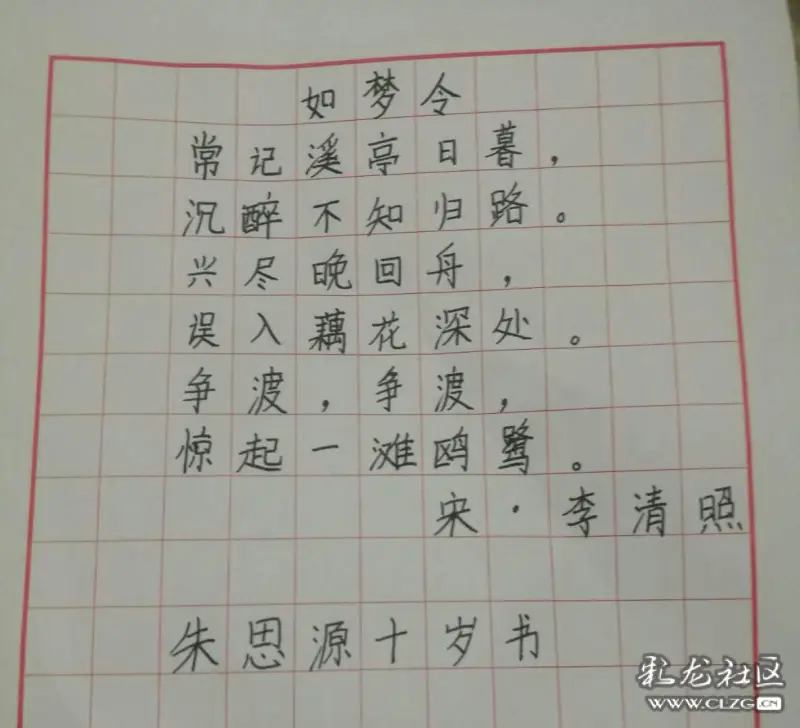 如梦令
常记溪亭日暮，
沉醉不知归路。
兴尽晚回舟，
误入藕花深处。
争渡，争渡，
惊起一滩鸥鹭。
宋·李清照
朱思源十岁书
乳龙社区
WWW.CLZG.CN